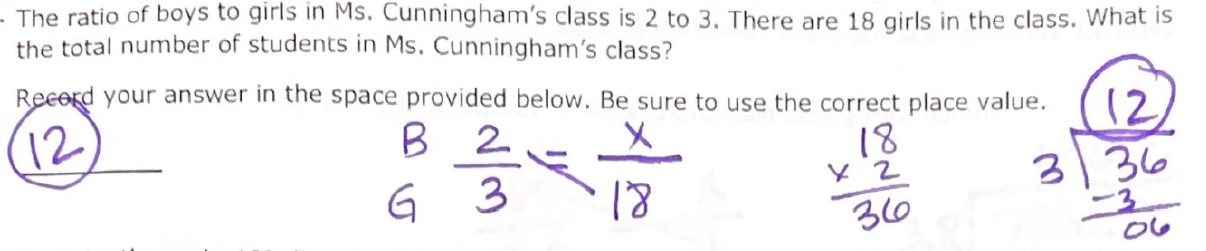 The ratio of boys to girls in Ms. Cunningham's class is 2 to 3. There are 18 girls in the class. What is
the total number of students in Ms. Cunningham's class?
Record your answer in the space provided below. Be sure to use the correct place value.
12
B 2 = x
G 3 18
18
x 2
36
12
3 36
-3
06